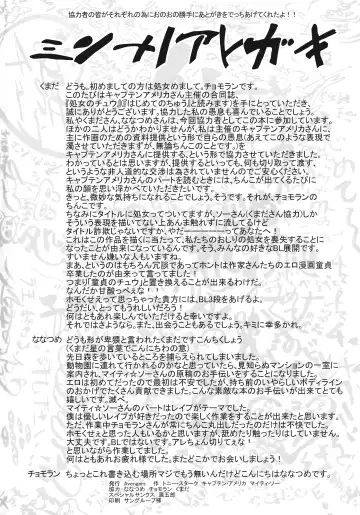 協力者の皆がそれぞれの為におのおの勝手にあとがきをでっちあげてくれたよ！！
ミンナノアトガキ
くまだ どうも、初めましての方は処女めまして、チョモランです。
このたびはキャプテンアメリカさん主催の合同誌、
『処女のチュウ』(『はじめてのちゅう』と読みます)を手にとっていただき、
誠にありがとうございます。協力した私の愚息も喜んでいることでしょう。
私やくまださん、ななつめさんは、今回協力者としてこの本に参加しています。
(ほかの二人はどうかわかりませんが、私は主催のキャプテンアメリカさんに、
主に作画のための資料提供という形で自らの愚息(あえてこのような表現で
濁させていただきますが、無論ちんこのことです。)を
キャプテンアメリカに提供する、という形で協力させていただきました。
わかっているとは思いますが、提供するといっても、何も切り取って渡す、
というような非人道的な交渉は為されていませんのでご安心ください。
キャプテンアメリカさんのパートを読むときには、ちんこが出てくるたびに
私の顔を思い浮かべていただきたいです。
きっと、微妙な気持ちになることでしょう。そうです、それが、チョモランの
ちんこです。
ちなみにタイトルに処女ってついてますが、ソーさん(くまださん協力)しか
そういう表現を描いてない上あんま触れずに流してるけど
タイトル詐欺じゃないですか、やだー―――――ってあなたへ！
これはこの作品を描くに当たって、私たちのおしりの処女を喪失することに
なったことが由来になっているんです。そう、みんなの好きなBL展開です。
すいません嫌いな人もいますね。
まあ、というのはもちろん冗談であってホントは作家さんたちのエロ漫画童貞
卒業したのが由来って言ってました！
つまり「童貞のチュウ」と置き換えることが出来るわけだ。
なんだか甘酸っぺえな！！
ホモくせえって思っちゃった貴方には、BL3段をあげるよ。
どうだい、とってもうれしいだろう！
何はともあれ楽しんでいただけると幸いですよ。
それではさようなら。また、出会うこともあるでしょう。キミに幸多かれ。
ななつめ どうも形が卑猥と言われたくまだですこんちくしょう
(くまだ星の言葉でこんにちわの意)
先日森を歩いているところを捕らえられてしまいました。
動物園に連れて行かれるのかなと思っていたら、見知らぬマンションの一室に
案内され、マイティ☆ソーさんの原稿のお手伝いをすることになりました。
エロは初めてだったので最初は不安でしたが、持ち前のいやらしいボディライン
のおかげでたくさん貢献できました。こんな素敵な本のお手伝いが出来てとても
嬉しいです。滅べ。
マイティ☆ソーさんのパートはレイプがテーマでした。
僕は優しいレイプが好きだったので楽しく作業をすることが出来たと思います。
ただ、作業中チョモランさんが常にちんこ丸出しだったのだけは不快でした。
ホモくせぇと思った人もいるかと思いますが、舐めたり触ったりはしていません。
大丈夫です。BLではないです。アレちょん切りてぇな！
と思いながら作業してました。
何はともあれお疲れ様でした。またどこかでお会いしましょう！
チョモラン ちょっとこれ書き込む場所マジでもう無いんだけどこんにちはななつめです。
発行 Avengers 作 トニー・スターク キャプテン・アメリカ マイティ・ソー
協力 ななつめ チョモラン くまだ
印刷 サングループ様